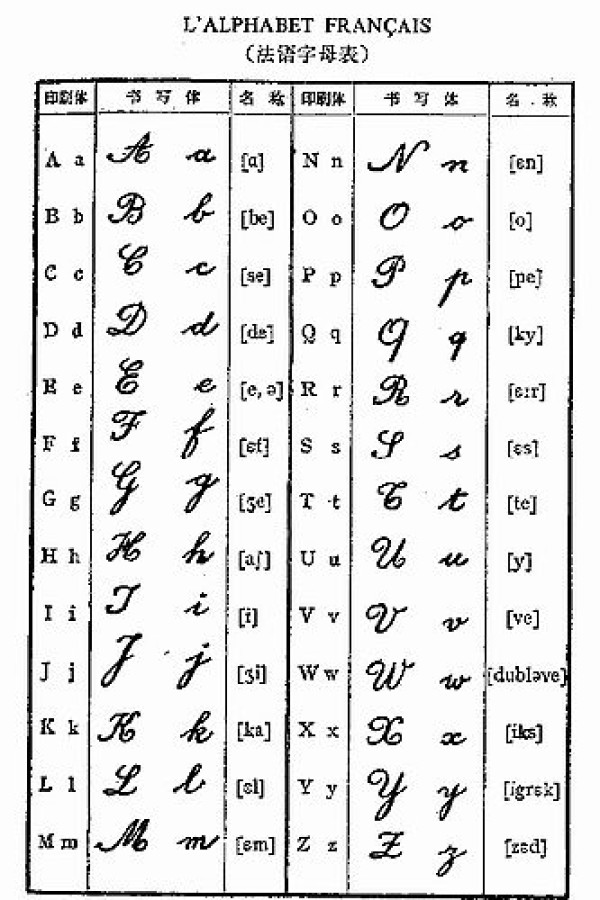 L'ALPHABET FRANÇAIS
（法语字母表）
印刷体 书写体 名称 印刷体 书写体 名.称
A a A a [ɑ] N n N n [ɛn]
B b B b [be] O o O o [o]
C c C c [se] P p P p [pe]
D d D d [de] Q q Q q [ky]
E e E e [e, ə] R r R r [ɛ:r]
F f F f [ɛf] S s S s [ɛs]
G g G g [ʒe] T t T t [te]
H h H h [aʃ] U u U u [y]
I i I i [i] V v V v [ve]
J j J j [ʒi] W w W w [dubləve]
K k K k [ka] X x X x [iks]
L l L l [ɛl] Y y Y y [igrɛk]
M m M m [ɛm] Z z Z z [zɛd]